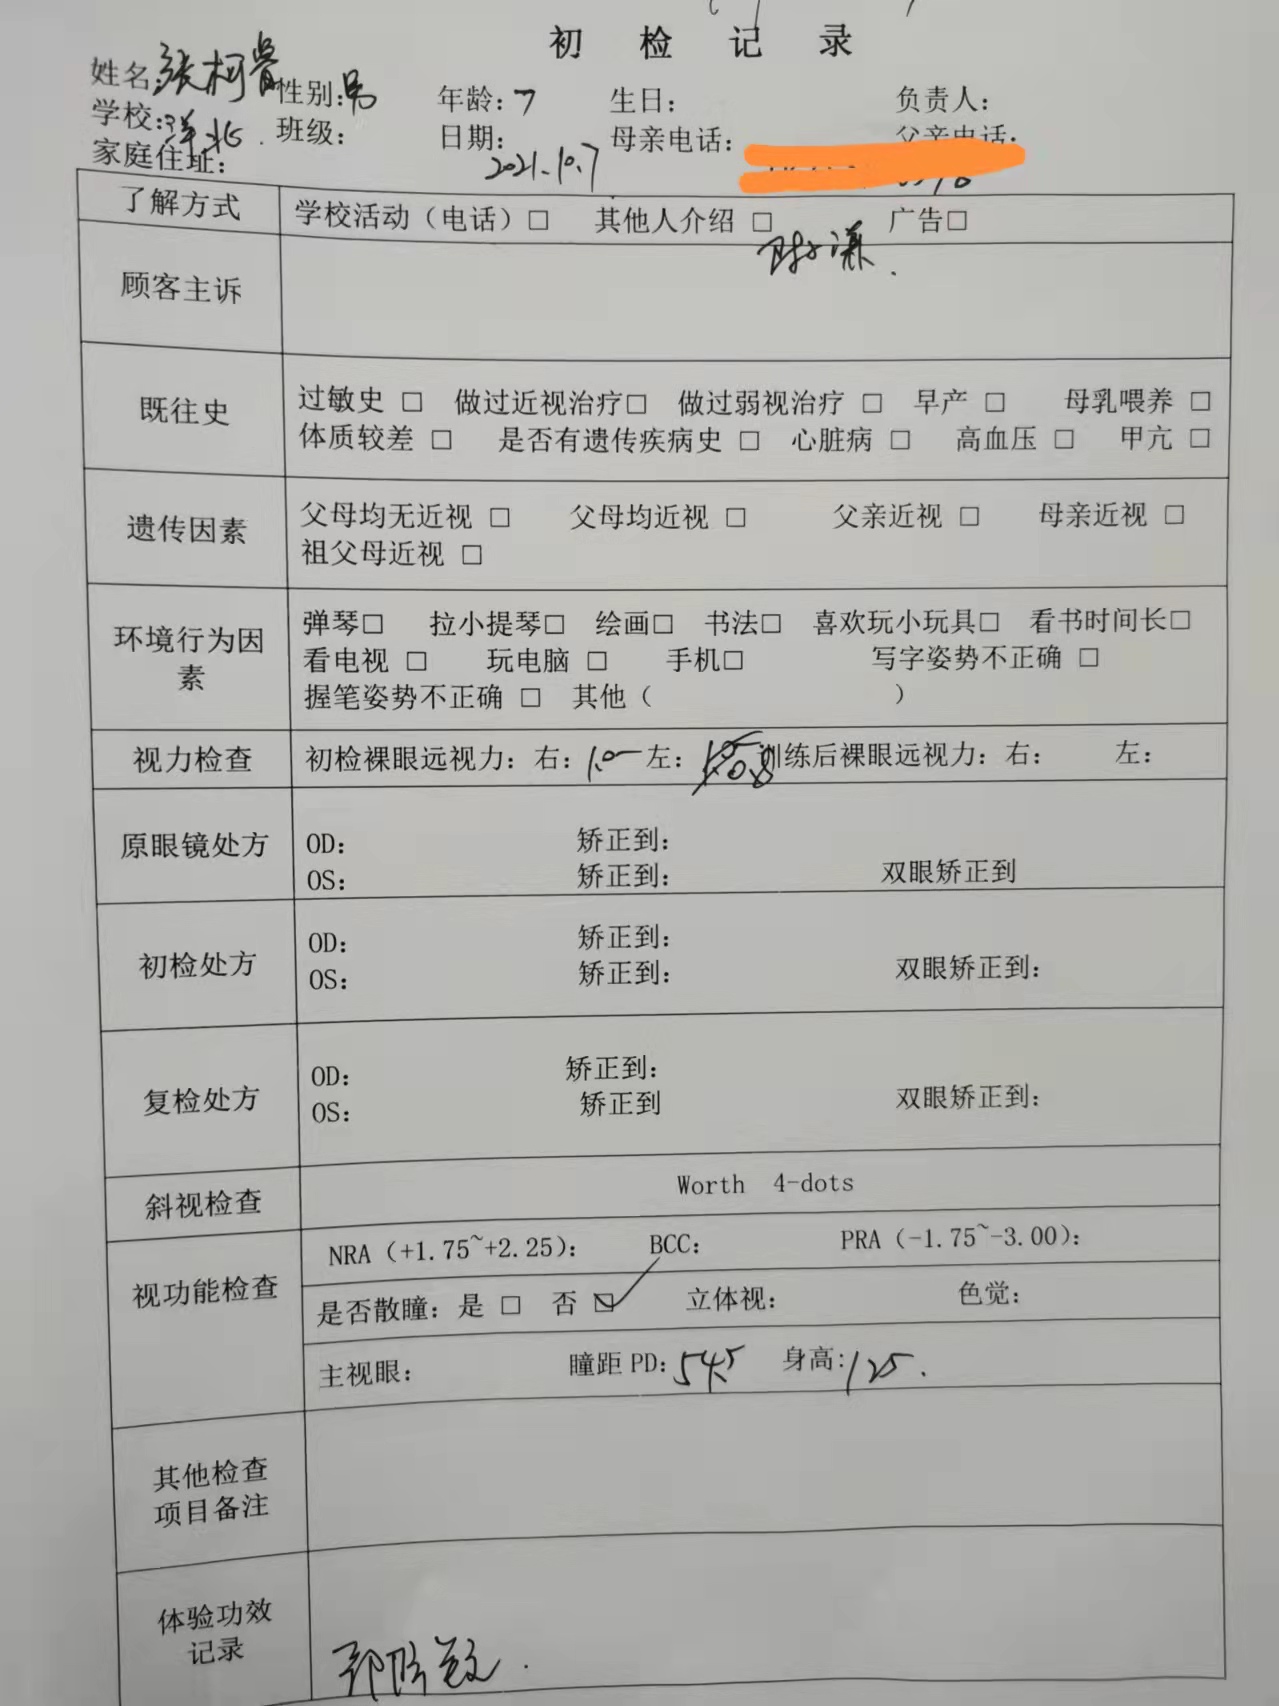 初 检 记 录
姓名: 张柯 性别: 男 年龄: 7 生日: 负责人:
学校: 洋北. 班级: 日期: 2021.10.7 母亲电话: 父亲电话:
家庭住址:
了解方式 学校活动（电话）□ 其他人介绍 □ 广告□
顾客主诉
既往史 过敏史 □ 做过近视治疗□ 做过弱视治疗 □ 早产 □ 母乳喂养 □
体质较差 □ 是否有遗传疾病史 □ 心脏病 □ 高血压 □ 甲亢 □
遗传因素 父母均无近视 □ 父母均近视 □ 父亲近视 □ 母亲近视 □
祖父母近视 □
环境行为因素 弹琴□ 拉小提琴□ 绘画□ 书法□ 喜欢玩小玩具□ 看书时间长□
看电视 □ 玩电脑 □ 手机□ 写字姿势不正确 □
握笔姿势不正确 □ 其他（ ）
视力检查 初检裸眼远视力: 右: 1.0 左: 0.8 训练后裸眼远视力: 右: 左:
原眼镜处方 OD: 矫正到:
OS: 矫正到: 双眼矫正到
初检处方 OD: 矫正到:
OS: 矫正到: 双眼矫正到:
复检处方 OD: 矫正到:
OS: 矫正到 双眼矫正到:
斜视检查 Worth 4-dots
视功能检查 NRA（+1.75~+2.25）: BCC: PRA（-1.75~-3.00）:
是否散瞳: 是 □ 否 ☑ 立体视: 色觉:
主视眼: 瞳距 PD: 54.5 身高: 125.
其他检查
项目备注
体验功效
记录